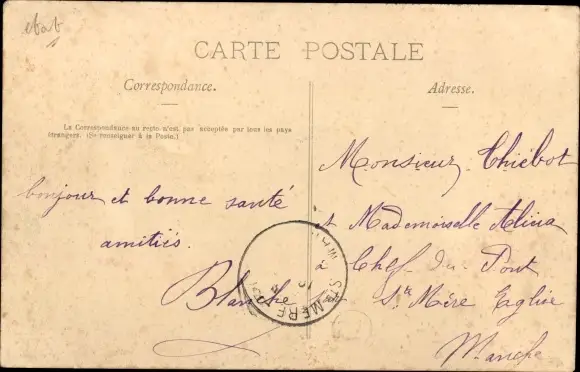 etat
CARTE POSTALE
Correspondance.
Adresse.
La Correspondance au recto n'est pas acceptée par tous les pays
étrangers. (Se renseigner à la Poste.)
bonjour et bonne santé
amitiés.
Blanche
Monsieur Thiébot
et Mademoiselle Alina
à Chef-du-Pont
Ste Mère Eglise
Manche
STE MERE